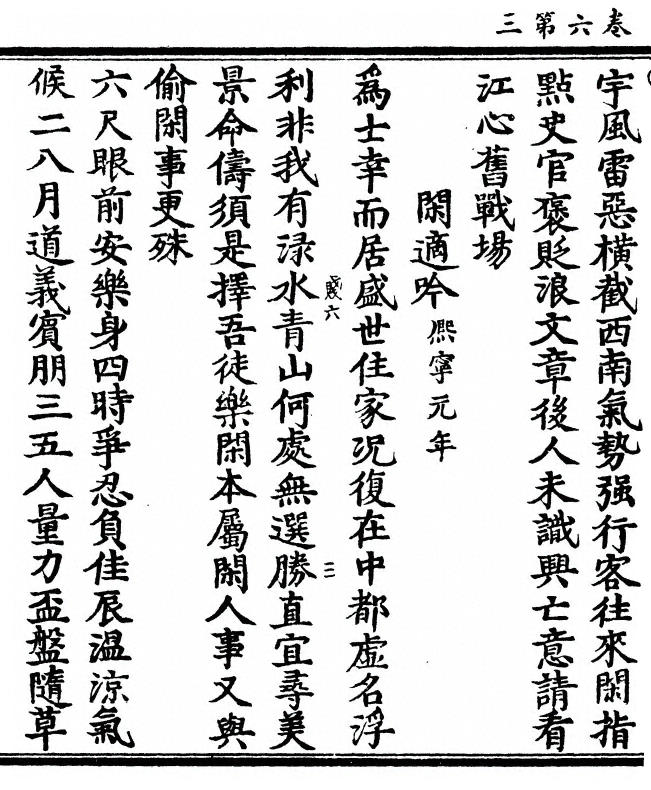 卷六第三
宇風雷惡橫截西南氣勢强行客往來閑指
點史官褒貶浪文章後人未識興亡意請看
江心舊戰場
閑適吟熙寧元年
爲士幸而居盛世住家况復在中都虛名浮
利非我有渌水青山何處無選勝直宜尋美
景命儔須是擇吾徒樂閑本屬閑人事又與
偷閑事更殊
六尺眼前安樂身四時爭忍負佳辰温涼氣
候二八月道義賓朋三五人量力盃盤隨草